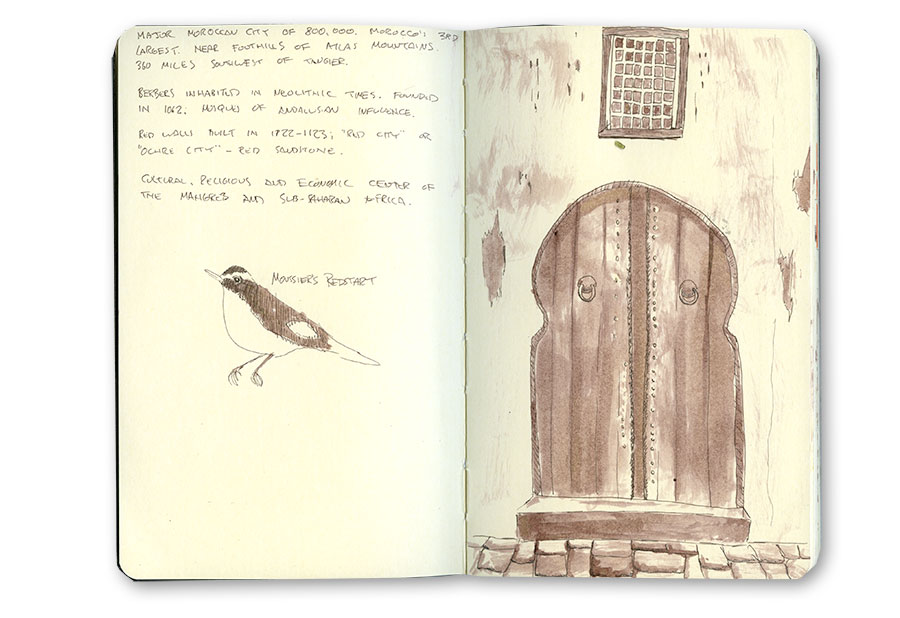 MAJOR MOROCCAN CITY OF 800,000. MOROCCO'S 3RD
LARGEST. NEAR FOOTHILLS OF ATLAS MOUNTAINS.
360 MILES SOUTHWEST OF TANGIER.
BERBERS INHABITED IN NEOLITHIC TIMES. FOUNDED
IN 1062. MOSQUES OF ANDALUSIAN INFLUENCE.
RED WALLS BUILT IN 1122-1123; "RED CITY" OR
"OCHRE CITY" - RED SANDSTONE.
CULTURAL, RELIGIOUS AND ECONOMIC CENTER OF
THE MAHGREB AND SUB-SAHARAN AFRICA.
MOUSSIER'S REDSTART